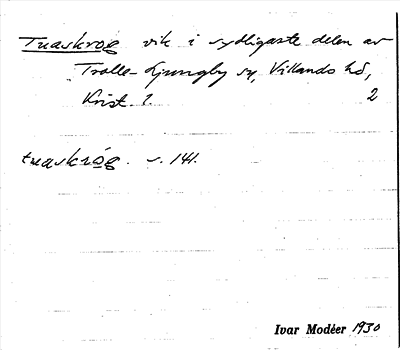 Tuaskrog vik i sydligaste delen av
Trolle-Ljungby sn, Villands hd,
Krist. l. 2
tuaskróg. s. 141.
Ivar Modéer 1930